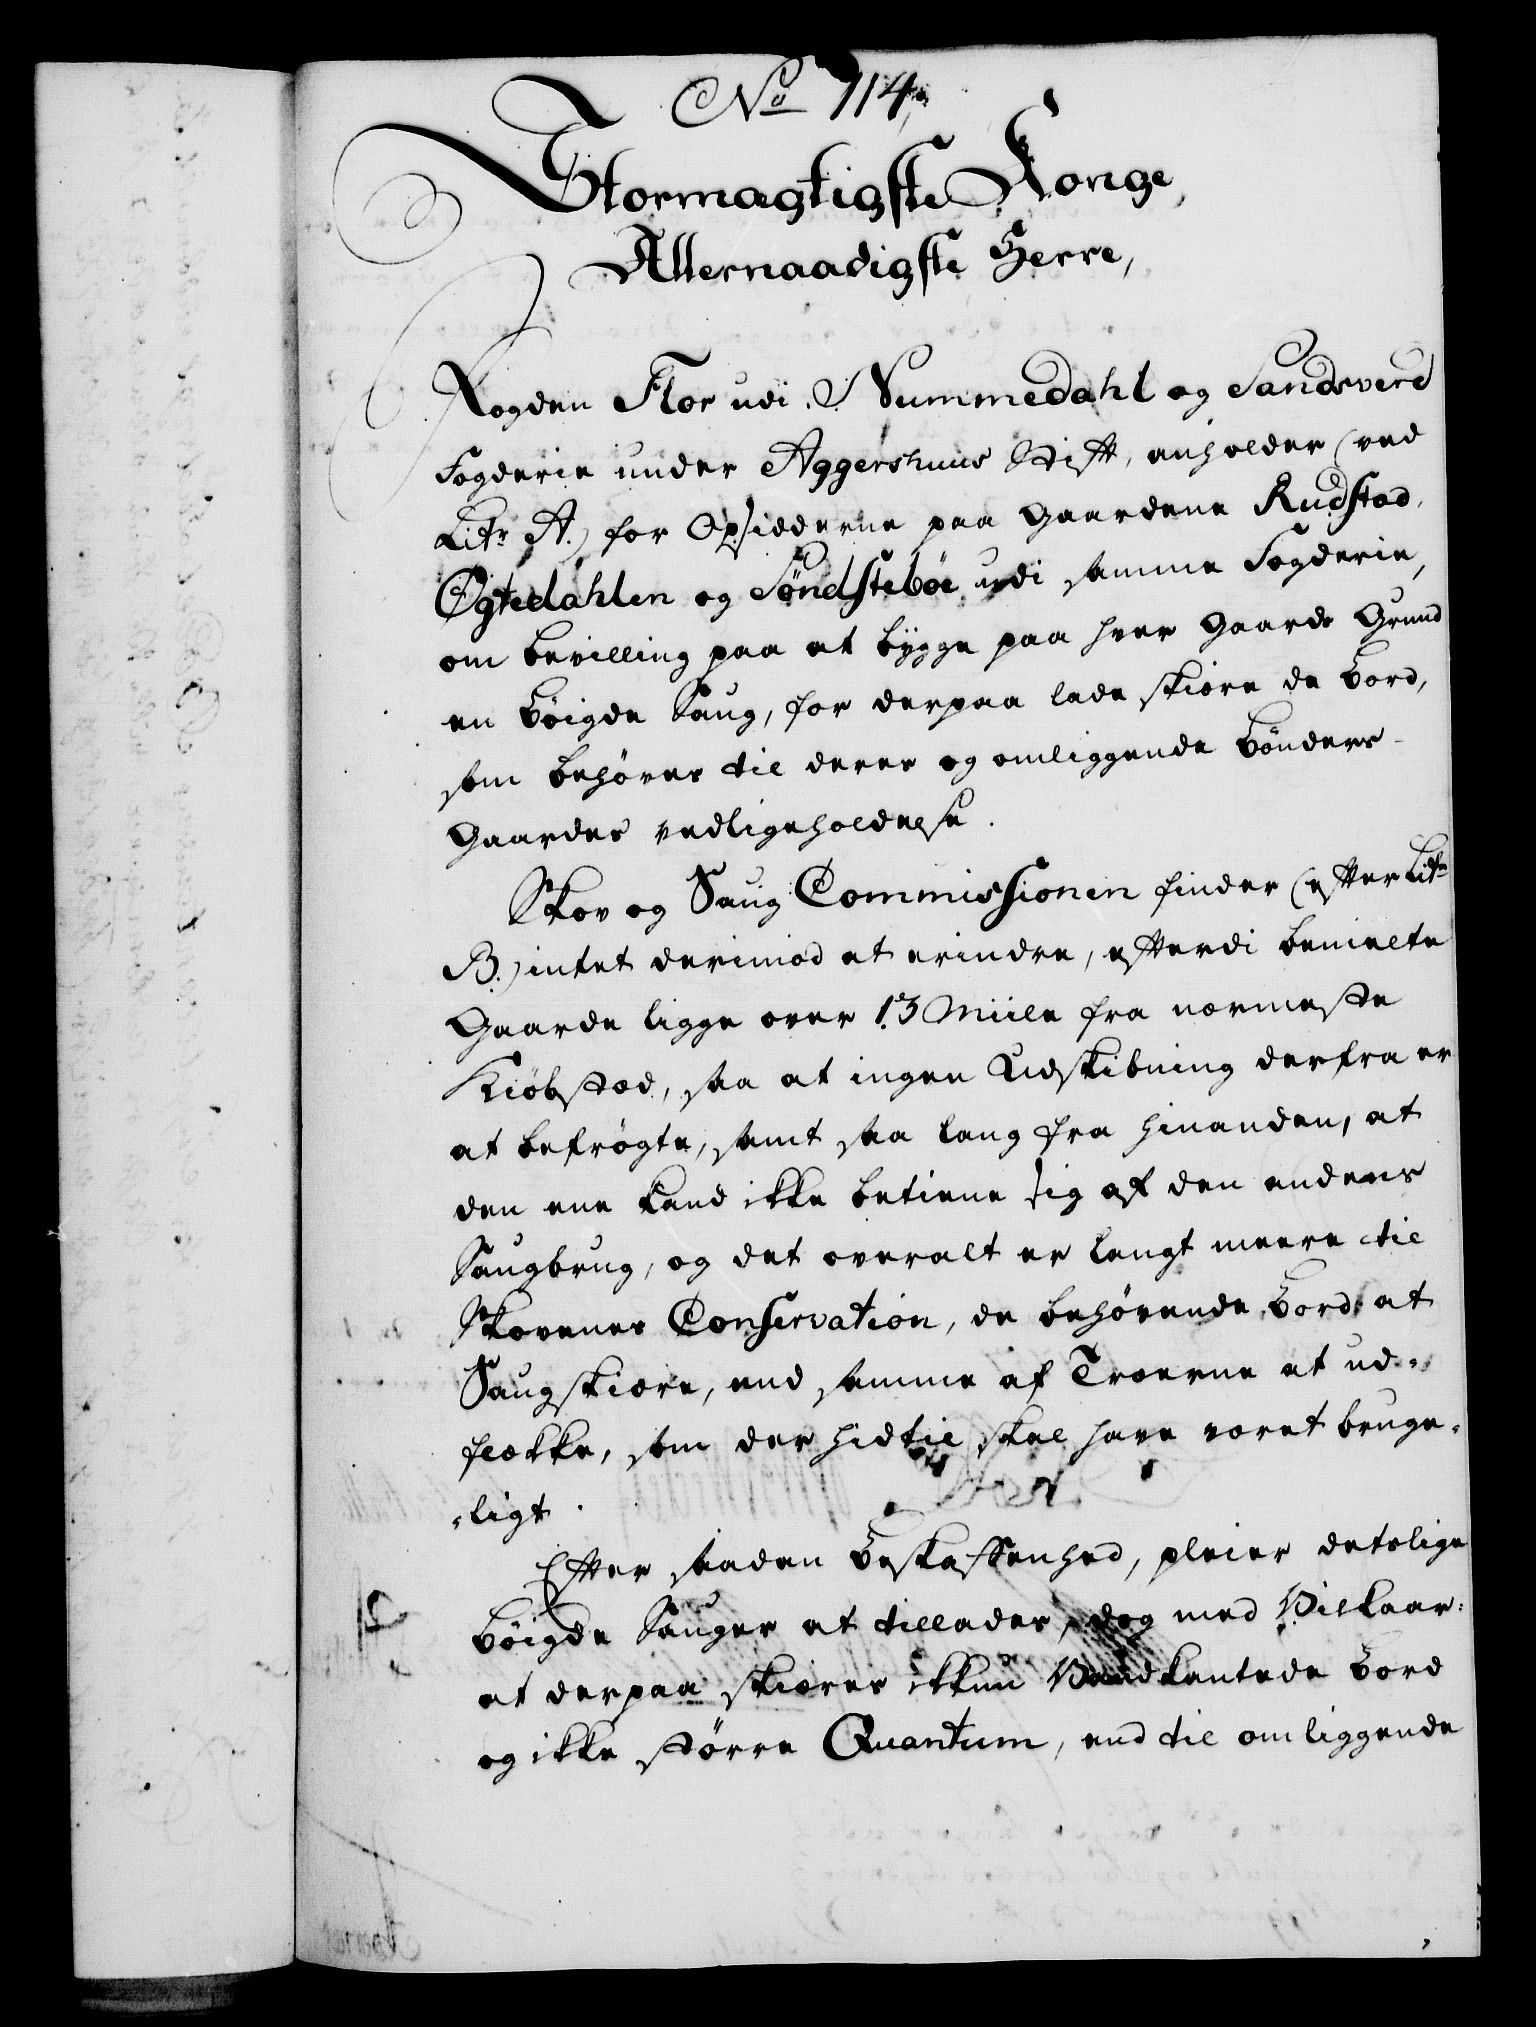 No 114,
Stormagtigste Konge,
Allernaadigste Herre,
Fogden Flor udi Nummedahl og Sandsverd
Fogderie under Aggershuus Stift, anholder (ved
Litr A.) for Opsidderne paa Gaardene Rudstad,
Øgtedahlen og Søndstebøe udi samme Fogderie,
om bevilling paa at bygge paa hver Gaards Grund
en Bøigde Saug, for derpaa lade skiære de Bord,
som behøves til deres og omliggende Bønders
Gaardes vedligeholdelse.
Skov og Saug Commissionen finder (efter Litr
B.) intet derimod at erindre, efterdi bemelte
Gaarde ligge over 13 Miile fra nærmeste
Kiøbstæd, saa at ingen Udskibning derfra er
at befrøgte, samt saa lang fra hinanden, at
den ene kand ikke betiene sig af den andens
Saugbrug, og det overalt er langt meere til
Skovenes Conservation, de behøvende Bord at
Saugskiære, end samme af Træerne at ud-
flække, som der hidtil skal have været bruge-
-ligt.
Efter saadan Beskaffenhed, pleier detslige
Bøigde Sauger at tillades, dog med Vilkaar:
at derpaa skiæres ikkun Vandkantede Bord
og ikke større Quantum, end til omliggende